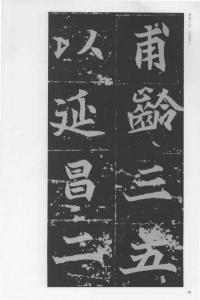 甫齡三五
以延昌二